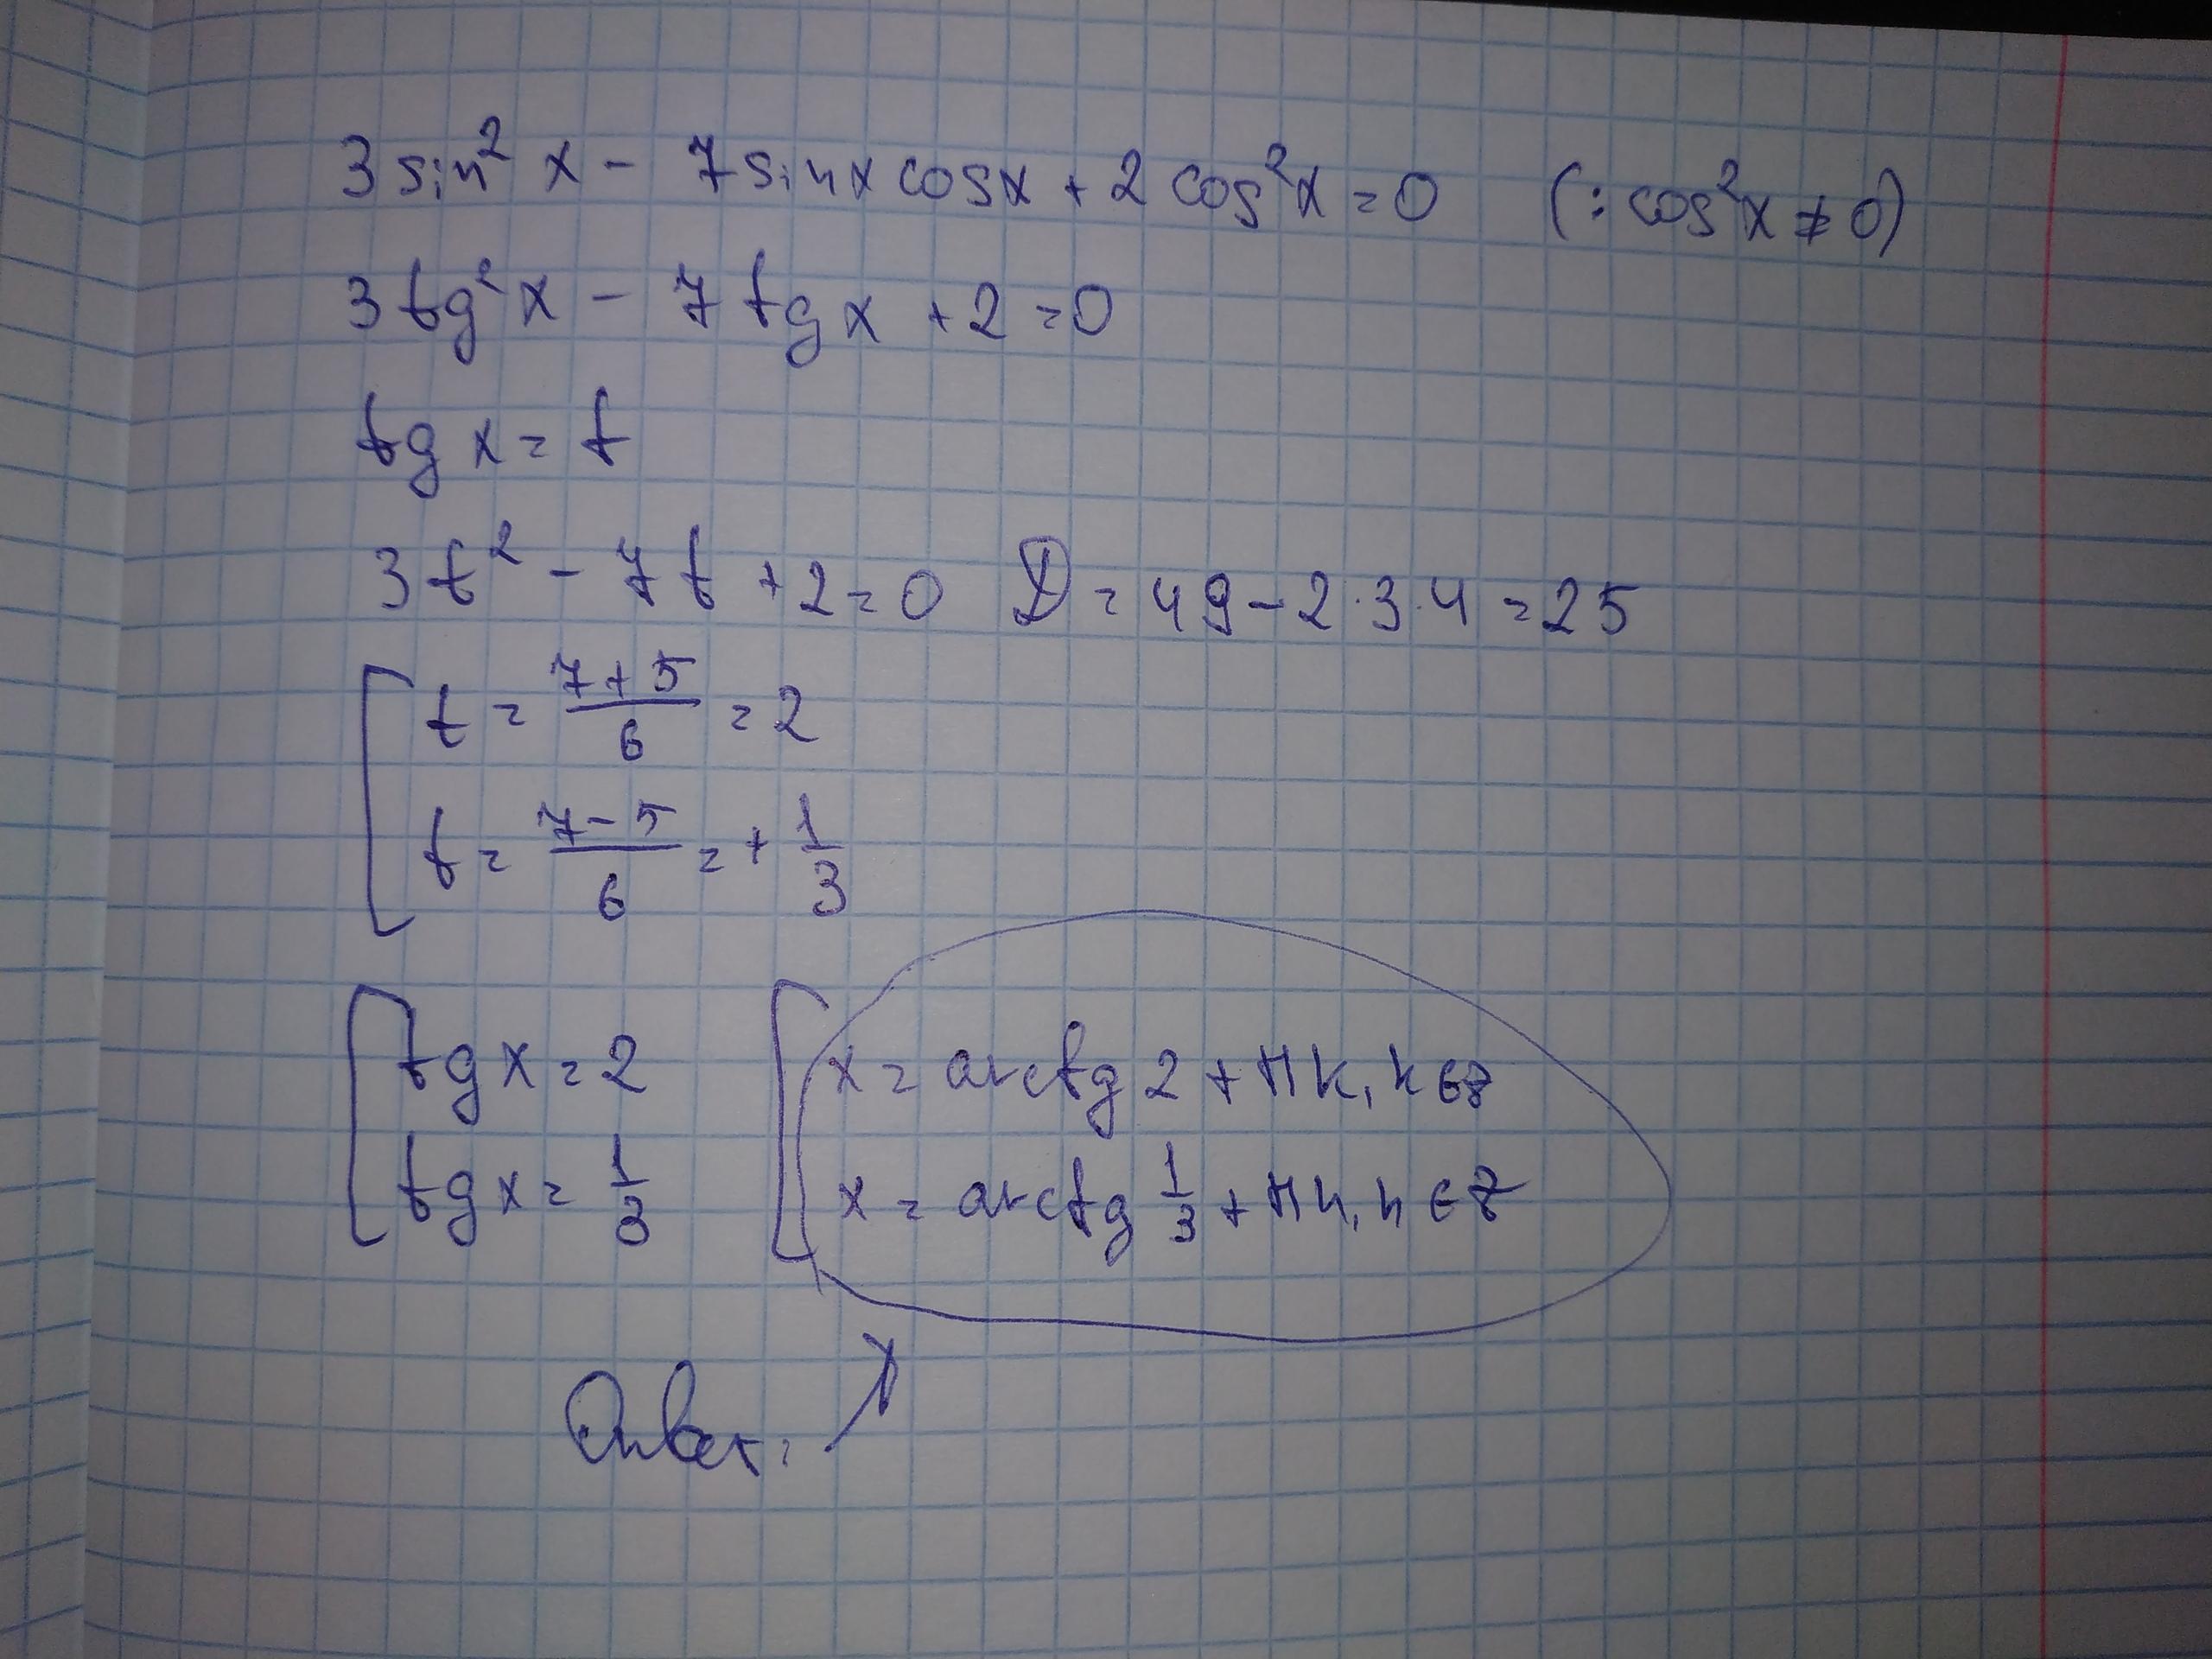 3 sin² x - 7 sin x cos x + 2 cos² x = 0 (: cos² x ≠ 0)
3 tg² x - 7 tg x + 2 = 0
tg x = t
3 t² - 7 t + 2 = 0 D = 49 - 2 · 3 · 4 = 25
t = (7 + 5)/6 = 2
t = (7 - 5)/6 = + 1/3
tg x = 2 x = arctg 2 + πk, k ∈ Z
tg x = 1/3 x = arctg 1/3 + πn, n ∈ Z
Ответ: ↗